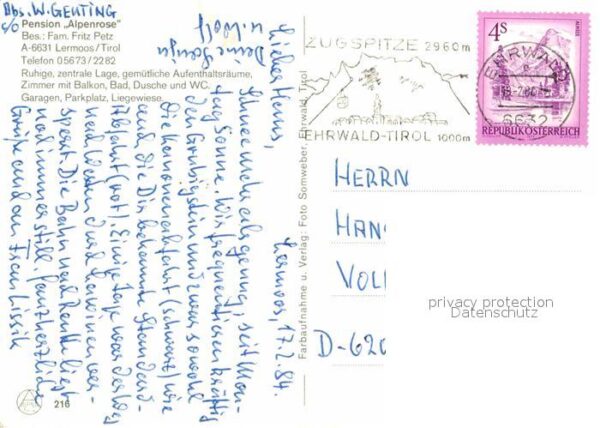 Abs. W. GEUTING
c/o
Pension „Alpenrose"
Bes.: Fam. Fritz Petz
A-6631 Lermoos/Tirol
Telefon 05673/2282
Ruhige, zentrale Lage, gemütliche Aufenthaltsräume,
Zimmer mit Balkon, Bad, Dusche und WC.
Garagen, Parkplatz, Liegewiese.
Lermoos, 17.2.84.
Lieber Hans,
Schnee mehr als genug, seit Mon-
tag Sonne. Wir frequentieren kräftig
den Grubigstein und zwar sowohl
die Kanonenabfahrt (schwarz) wie
auch die Dir bekannte Standard-
Abfahrt (rot). Einige Tage war der Weg
nach Westen durch Lawinen ver-
sperrt. Die Bahn nach Reutte liegt
noch immer still. Ganz herzliche
Grüße und an Frau Lissik
Deine
u. Wolf
216
Farbaufnahme u. Verlag: Foto Somweber, Ehrwald, Tirol
ZUGSPITZE 2960m
EHRWALD-TIROL 1000m
EHRWALD
6632
4S
REPUBLIK ÖSTERREICH
HERRN
HAN
VOLL
D-620
privacy protection
Datenschutz